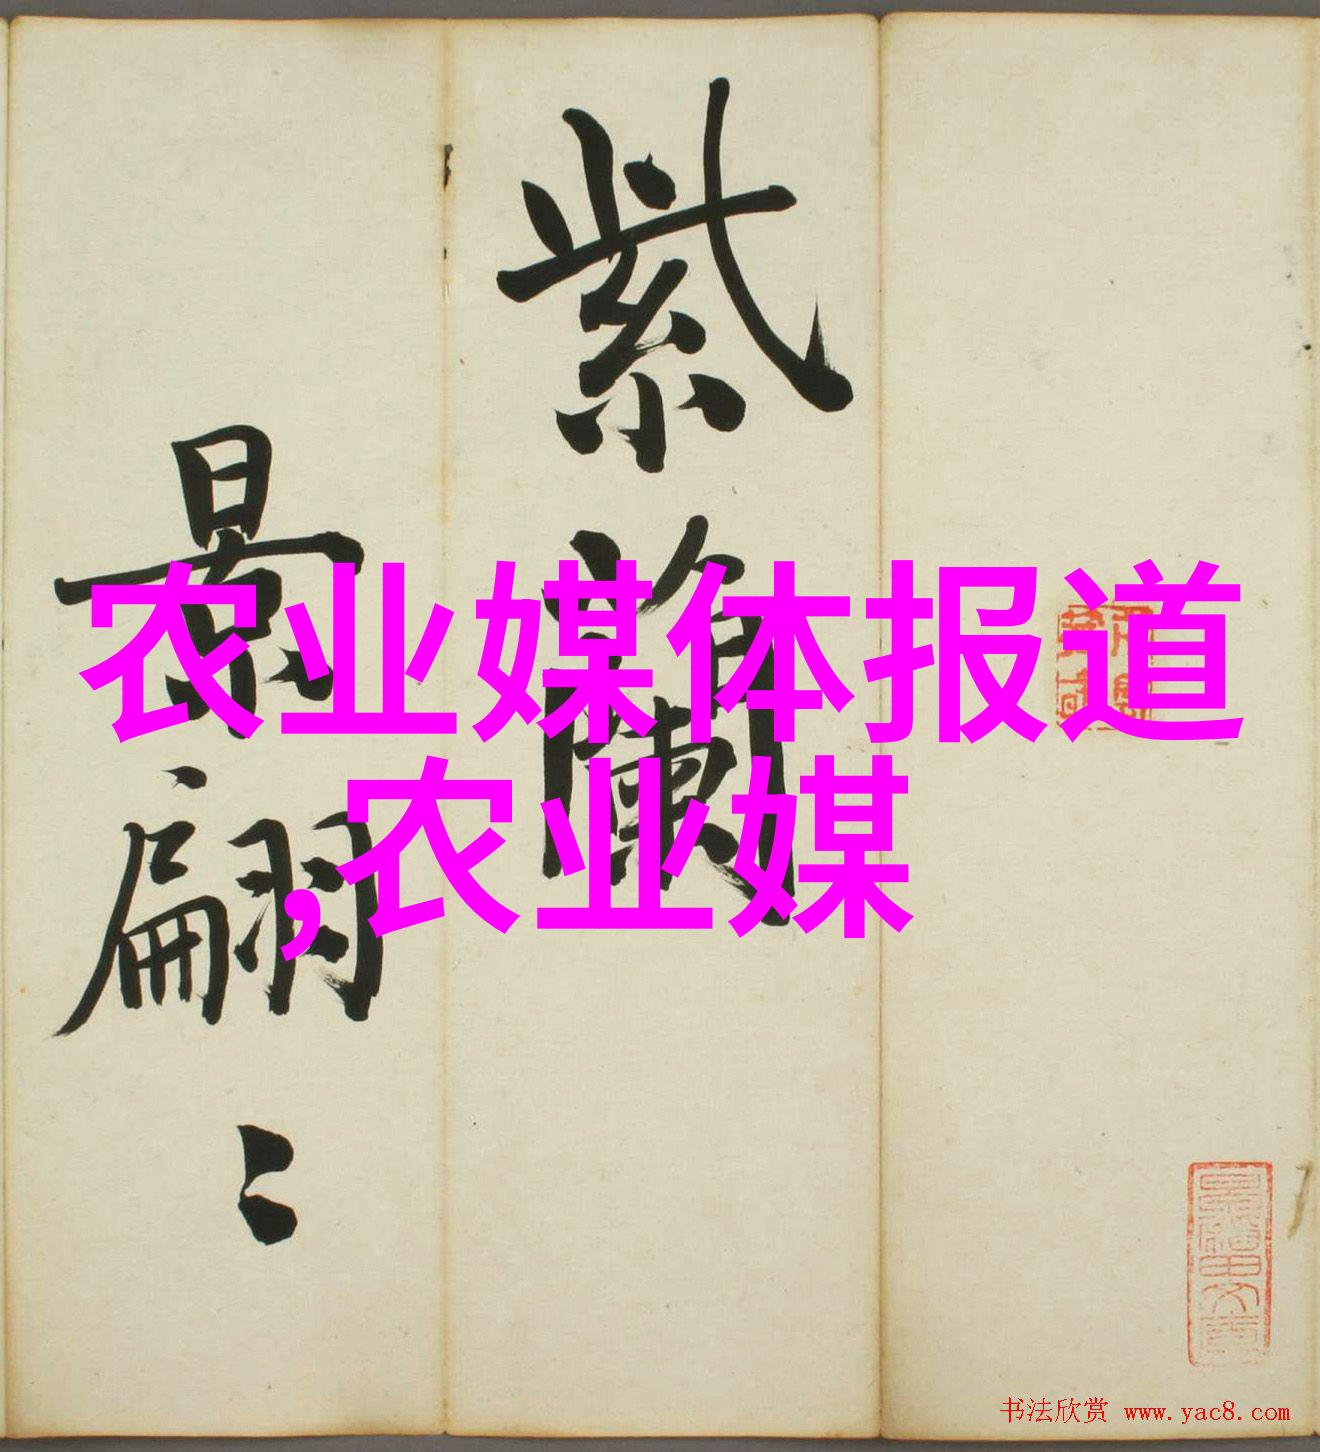 紫蘭
景翩〻
农业媒体报道
,农业媒
书法欣赏 www.yac8.com